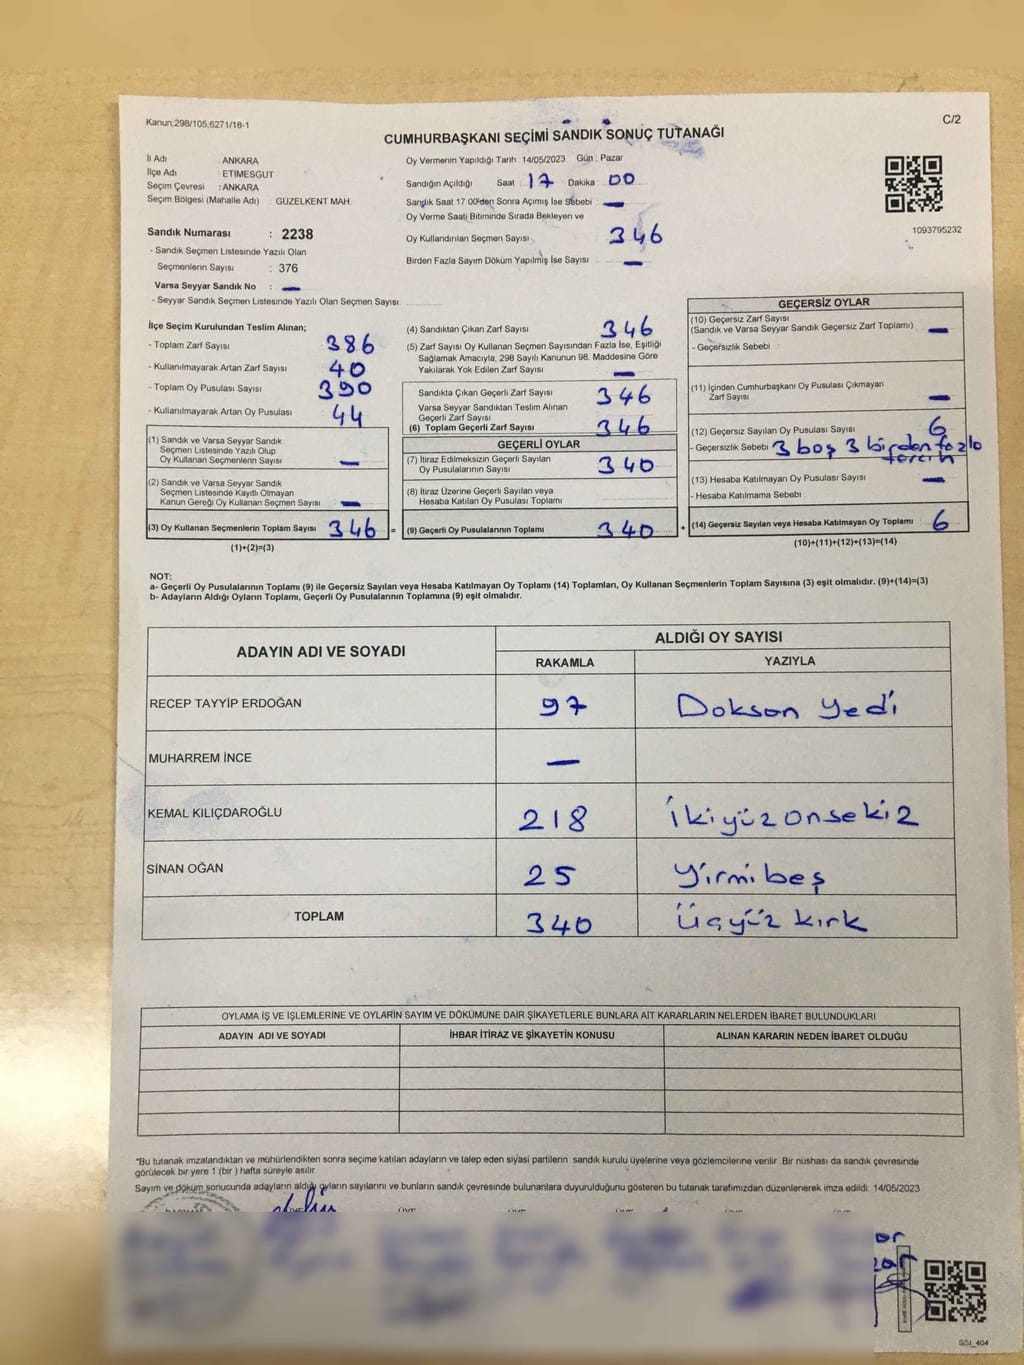 Kanun;298/105,6271/18-1
C/2
CUMHURBAŞKANI SEÇİMİ SANDIK SONUÇ TUTANAĞI
İl Adı ANKARA
İlçe Adı ETİMESGUT
Seçim Çevresi : ANKARA
Seçim Bölgesi (Mahalle Adı) : GÜZELKENT MAH.
Sandık Numarası : 2238
- Sandık Seçmen Listesinde Yazılı Olan
Seçmenlerin Sayısı : 376
Varsa Seyyar Sandık No : –
- Seyyar Sandık Seçmen Listesinde Yazılı Olan Seçmen Sayısı
Oy Vermenin Yapıldığı Tarih 14/05/2023 Gün : Pazar
Sandığın Açıldığı Saat 17 Dakika 00
Sandık Saat 17.00'den Sonra Açımış İse Sebebi : –
Oy Verme Saati Bitiminde Sırada Bekleyen ve
Oy Kullandırılan Seçmen Sayısı 346
Birden Fazla Sayım Döküm Yapılmış İse Sayısı : –
1093795232
İlçe Seçim Kurulundan Teslim Alınan;
- Toplam Zarf Sayısı 386
- Kullanılmayarak Artan Zarf Sayısı 40
- Toplam Oy Pusulası Sayısı 390
- Kullanılmayarak Artan Oy Pusulası 44
(1) Sandık ve Varsa Seyyar Sandık
Seçmen Listesinde Yazılı Olup
Oy Kullanan Seçmenlerin Sayısı –
(2) Sandık ve Varsa Seyyar Sandık
Seçmen Listesinde Kayıtlı Olmayan
Kanun Gereği Oy Kullanan Seçmen Sayısı –
(3) Oy Kullanan Seçmenlerin Toplam Sayısı 346 =
(1)+(2)=(3)
(4) Sandıktan Çıkan Zarf Sayısı 346
(5) Zarf Sayısı Oy Kullanan Seçmen Sayısından Fazla İse, Eşitliği
Sağlamak Amacıyla; 298 Sayılı Kanunun 98. Maddesine Göre
Yakılarak Yok Edilen Zarf Sayısı –
Sandıkta Çıkan Geçerli Zarf Sayısı 346
Varsa Seyyar Sandıktan Teslim Alınan
Geçerli Zarf Sayısı
(6) Toplam Geçerli Zarf Sayısı 346
GEÇERLİ OYLAR
(7) İtiraz Edilmeksizin Geçerli Sayılan
Oy Pusulalarının Sayısı 340
(8) İtiraz Üzerine Geçerli Sayılan veya
Hesaba Katılan Oy Pusulası Toplamı
(9) Geçerli Oy Pusulalarının Toplamı 340 +
GEÇERSİZ OYLAR
(10) Geçersiz Zarf Sayısı
(Sandık ve Varsa Seyyar Sandık Geçersiz Zarf Toplamı) –
- Geçersizlik Sebebi :
(11) İçinden Cumhurbaşkanı Oy Pusulası Çıkmayan
Zarf Sayısı –
(12) Geçersiz Sayılan Oy Pusulası Sayısı 6
- Geçersizlik Sebebi 3 boş 3 birden fazla
tercih
(13) Hesaba Katılmayan Oy Pusulası Sayısı –
- Hesaba Katılmama Sebebi :
(14) Geçersiz Sayılan veya Hesaba Katılmayan Oy Toplamı 6
(10)+(11)+(12)+(13)=(14)
NOT:
a- Geçerli Oy Pusulalarının Toplamı (9) ile Geçersiz Sayılan veya Hesaba Katılmayan Oy Toplamı (14) Toplamları, Oy Kullanan Seçmenlerin Toplam Sayısına (3) eşit olmalıdır. (9)+(14)=(3)
b- Adayların Aldığı Oyların Toplamı, Geçerli Oy Pusulalarının Toplamına (9) eşit olmalıdır.
ADAYIN ADI VE SOYADI ALDIĞI OY SAYISI
RAKAMLA YAZIYLA
RECEP TAYYİP ERDOĞAN 97 Doksan Yedi
MUHARREM İNCE –
KEMAL KILIÇDAROĞLU 218 İkiyüzonsekiz
SİNAN OĞAN 25 Yirmibeş
TOPLAM 340 Üçyüz kırk
OYLAMA İŞ VE İŞLEMLERİNE VE OYLARIN SAYIM VE DÖKÜMÜNE DAİR ŞİKAYETLERLE BUNLARA AİT KARARLARIN NELERDEN İBARET BULUNDUKLARI
ADAYIN ADI VE SOYADI İHBAR İTİRAZ VE ŞİKAYETİN KONUSU ALINAN KARARIN NEDEN İBARET OLDUĞU
*Bu tutanak imzalandıktan ve mühürlendikten sonra seçime katılan adayların ve talep eden siyasi partilerin sandık kurulu üyelerine veya gözlemcilerine verilir. Bir nüshası da sandık çevresinde
görülecek bir yere 1 (bir) hafta süreyle asılır.
Sayım ve döküm sonucunda adayların aldığı oyların sayılarını ve bunların sandık çevresinde bulunanlara duyurulduğunu gösteren bu tutanak tarafımızdan düzenlenerek imza edildi. 14/05/2023
SSI_404